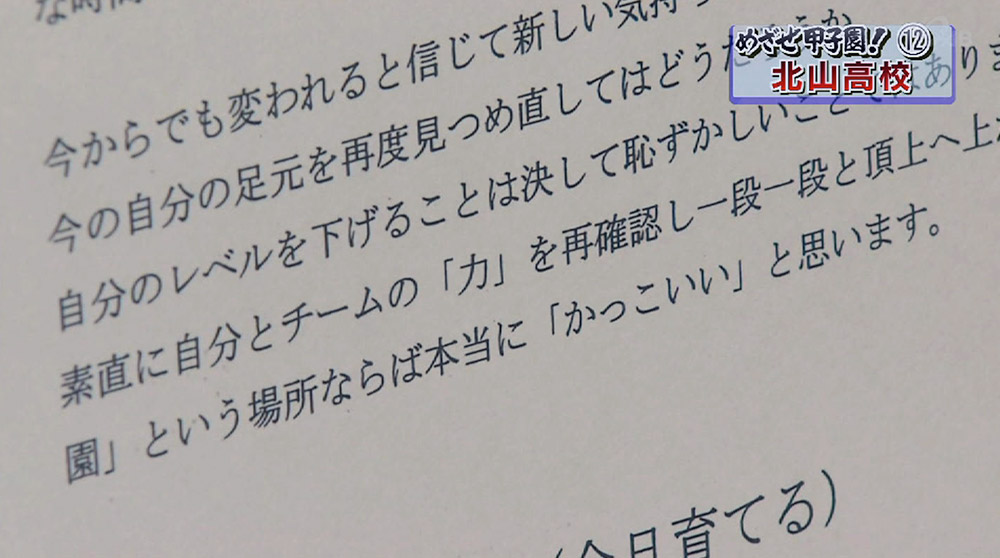 めざせ甲子園!⑫
北山高校
な時間
今からでも変われると信じて新しい気持
今の自分の足元を再度見つめ直してはどうだ
自分のレベルを下げることは決して恥ずかしいこと はありま
素直に自分とチームの「力」を再確認し一段一段と頂上へ上
園」という場所ならば本当に「かっこいい」と思います。
(今日育てる)